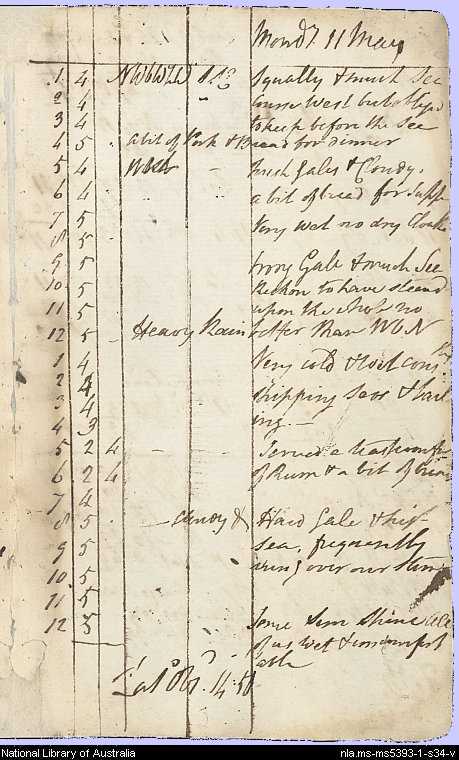 Mond.y 11 May
1 4 NWbW½W Squally & much Sea
2 4 Course West but obliged
3 4 to keep before the Sea
4 5 a bit of Pork & Bread for dinner
5 4 West - fresh Gales & Cloudy.
6 4 a bit of bread for Supp
7 5 Very wet no dry Cloaths
8 5
9 5 Strong Gale & much Sea
10 5 Reckon to have steered
11 5 upon the whole no
12 5 Heavy Rain better than WbN
1 4 Very cold & wet cons
2 4 shipping Seas & bail
3 4 ing.—
4 3
5 2 4 - - Served a teaspoonfu
6 2 4 of Rum & a bit of bread
7 4
8 5 - Cloudy & Hard Gale & high
9 5 sea, frequently
10 5 runing over our Stern
11 5
12 5 Some Sun Shine all
of us wet & uncomfort
able
Lat Obs.d 14.50
National Library of Australia nla.ms-ms5393-1-s34-v